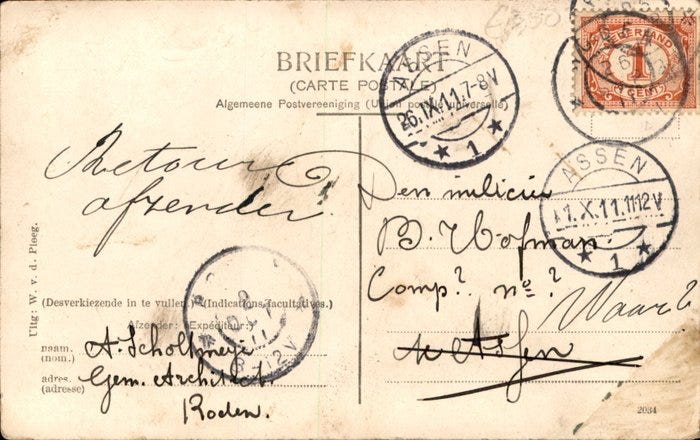 BRIEFKAART
(CARTE POSTALE)
Algemeene Postvereeniging (Union postale universelle)
NEDERLAND
1
CENT
ASSEN
26.IX.11.7-8V
1
ASSEN
1.X.11.11-12V
1
Retour
afzender.
Den milicien
B. Hofman.
Comp? no?
Waar?
te Assen
(Desverkiezende in te vullen.) (Indications facultatives.)
Afzender: (Expéditeur:)
naam.
(nom.)
A. Scholtmeyer
adres.
(adresse)
Gem. Architect.
Roden.
Uitg: W. v. d. Ploeg.
2034